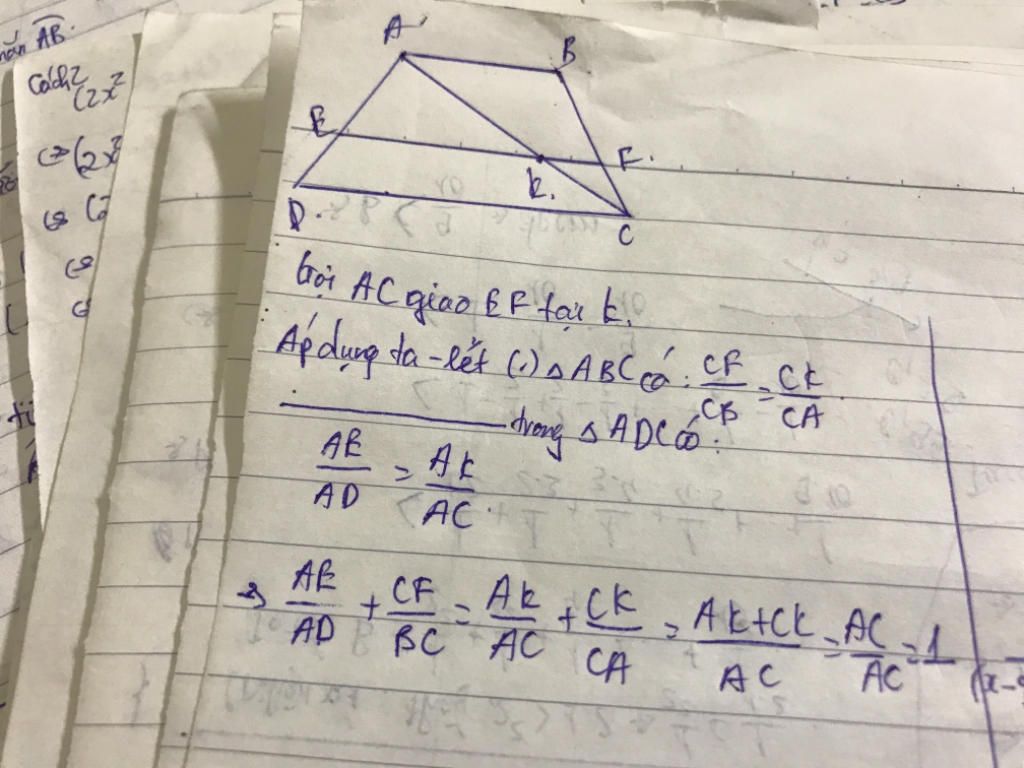 AB.
Cách2
(2x²
<=> (2x²
A
B
E
F.
K.
D.
C
Gọi AC giao EF tại K.
Áp dụng ta-lét (.) △ ABC có: CF/CB = CK/CA
_____ trong △ ADC có:
AE/AD = AK/AC.
=> AE/AD + CF/BC = AK/AC + CK/CA = AK+CK/AC = AC/AC = 1